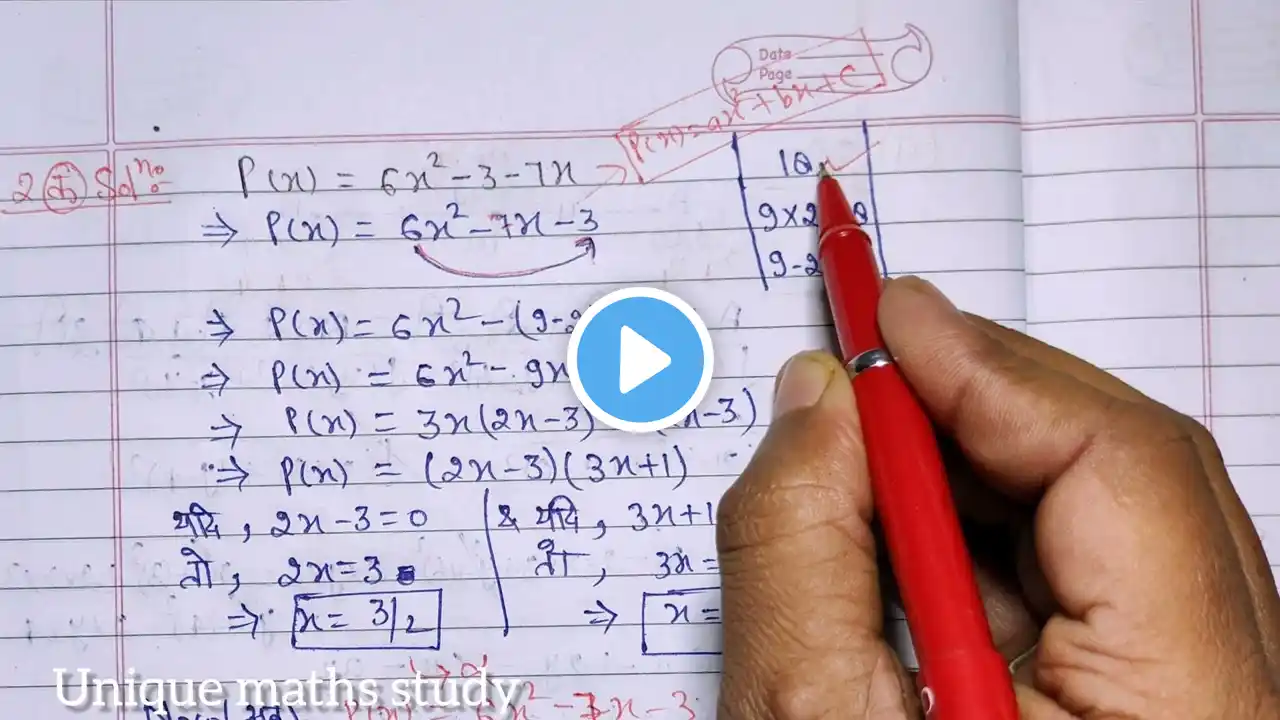 Date
Page
P(x) = ax² + bx + c
2 (क) Solⁿ
P(x) = 6x² - 3 - 7x
⇒ P(x) = 6x² - 7x - 3
18
9×2
9-2
⇒ P(x) = 6x² - (9-2
⇒ P(x) = 6x² - 9x
⇒ P(x) = 3x(2x-3) x-3)
⇒ P(x) = (2x-3)(3x+1)
यदि, 2x-3=0
तो, 2x=3
⇒ x= 3/2
& यदि, 3x+1
तो, 3x=
⇒ x=
P(x) = 6x² - 7x - 3
Unique maths study